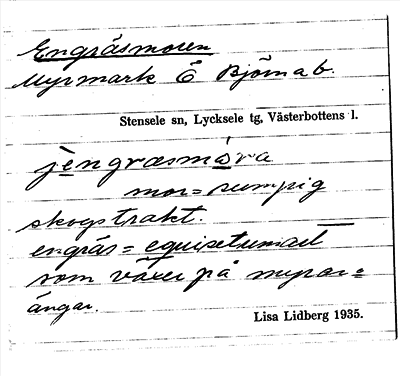 Engräsmoren
Myrmark Ö Björnab.
Stensele sn, Lycksele tg, Västerbottens l.
jengræsmåra
mor = sumpig
skogstrakt.
engräs = equisetumart
som växer på myrar =
ängar.
Lisa Lidberg 1935.